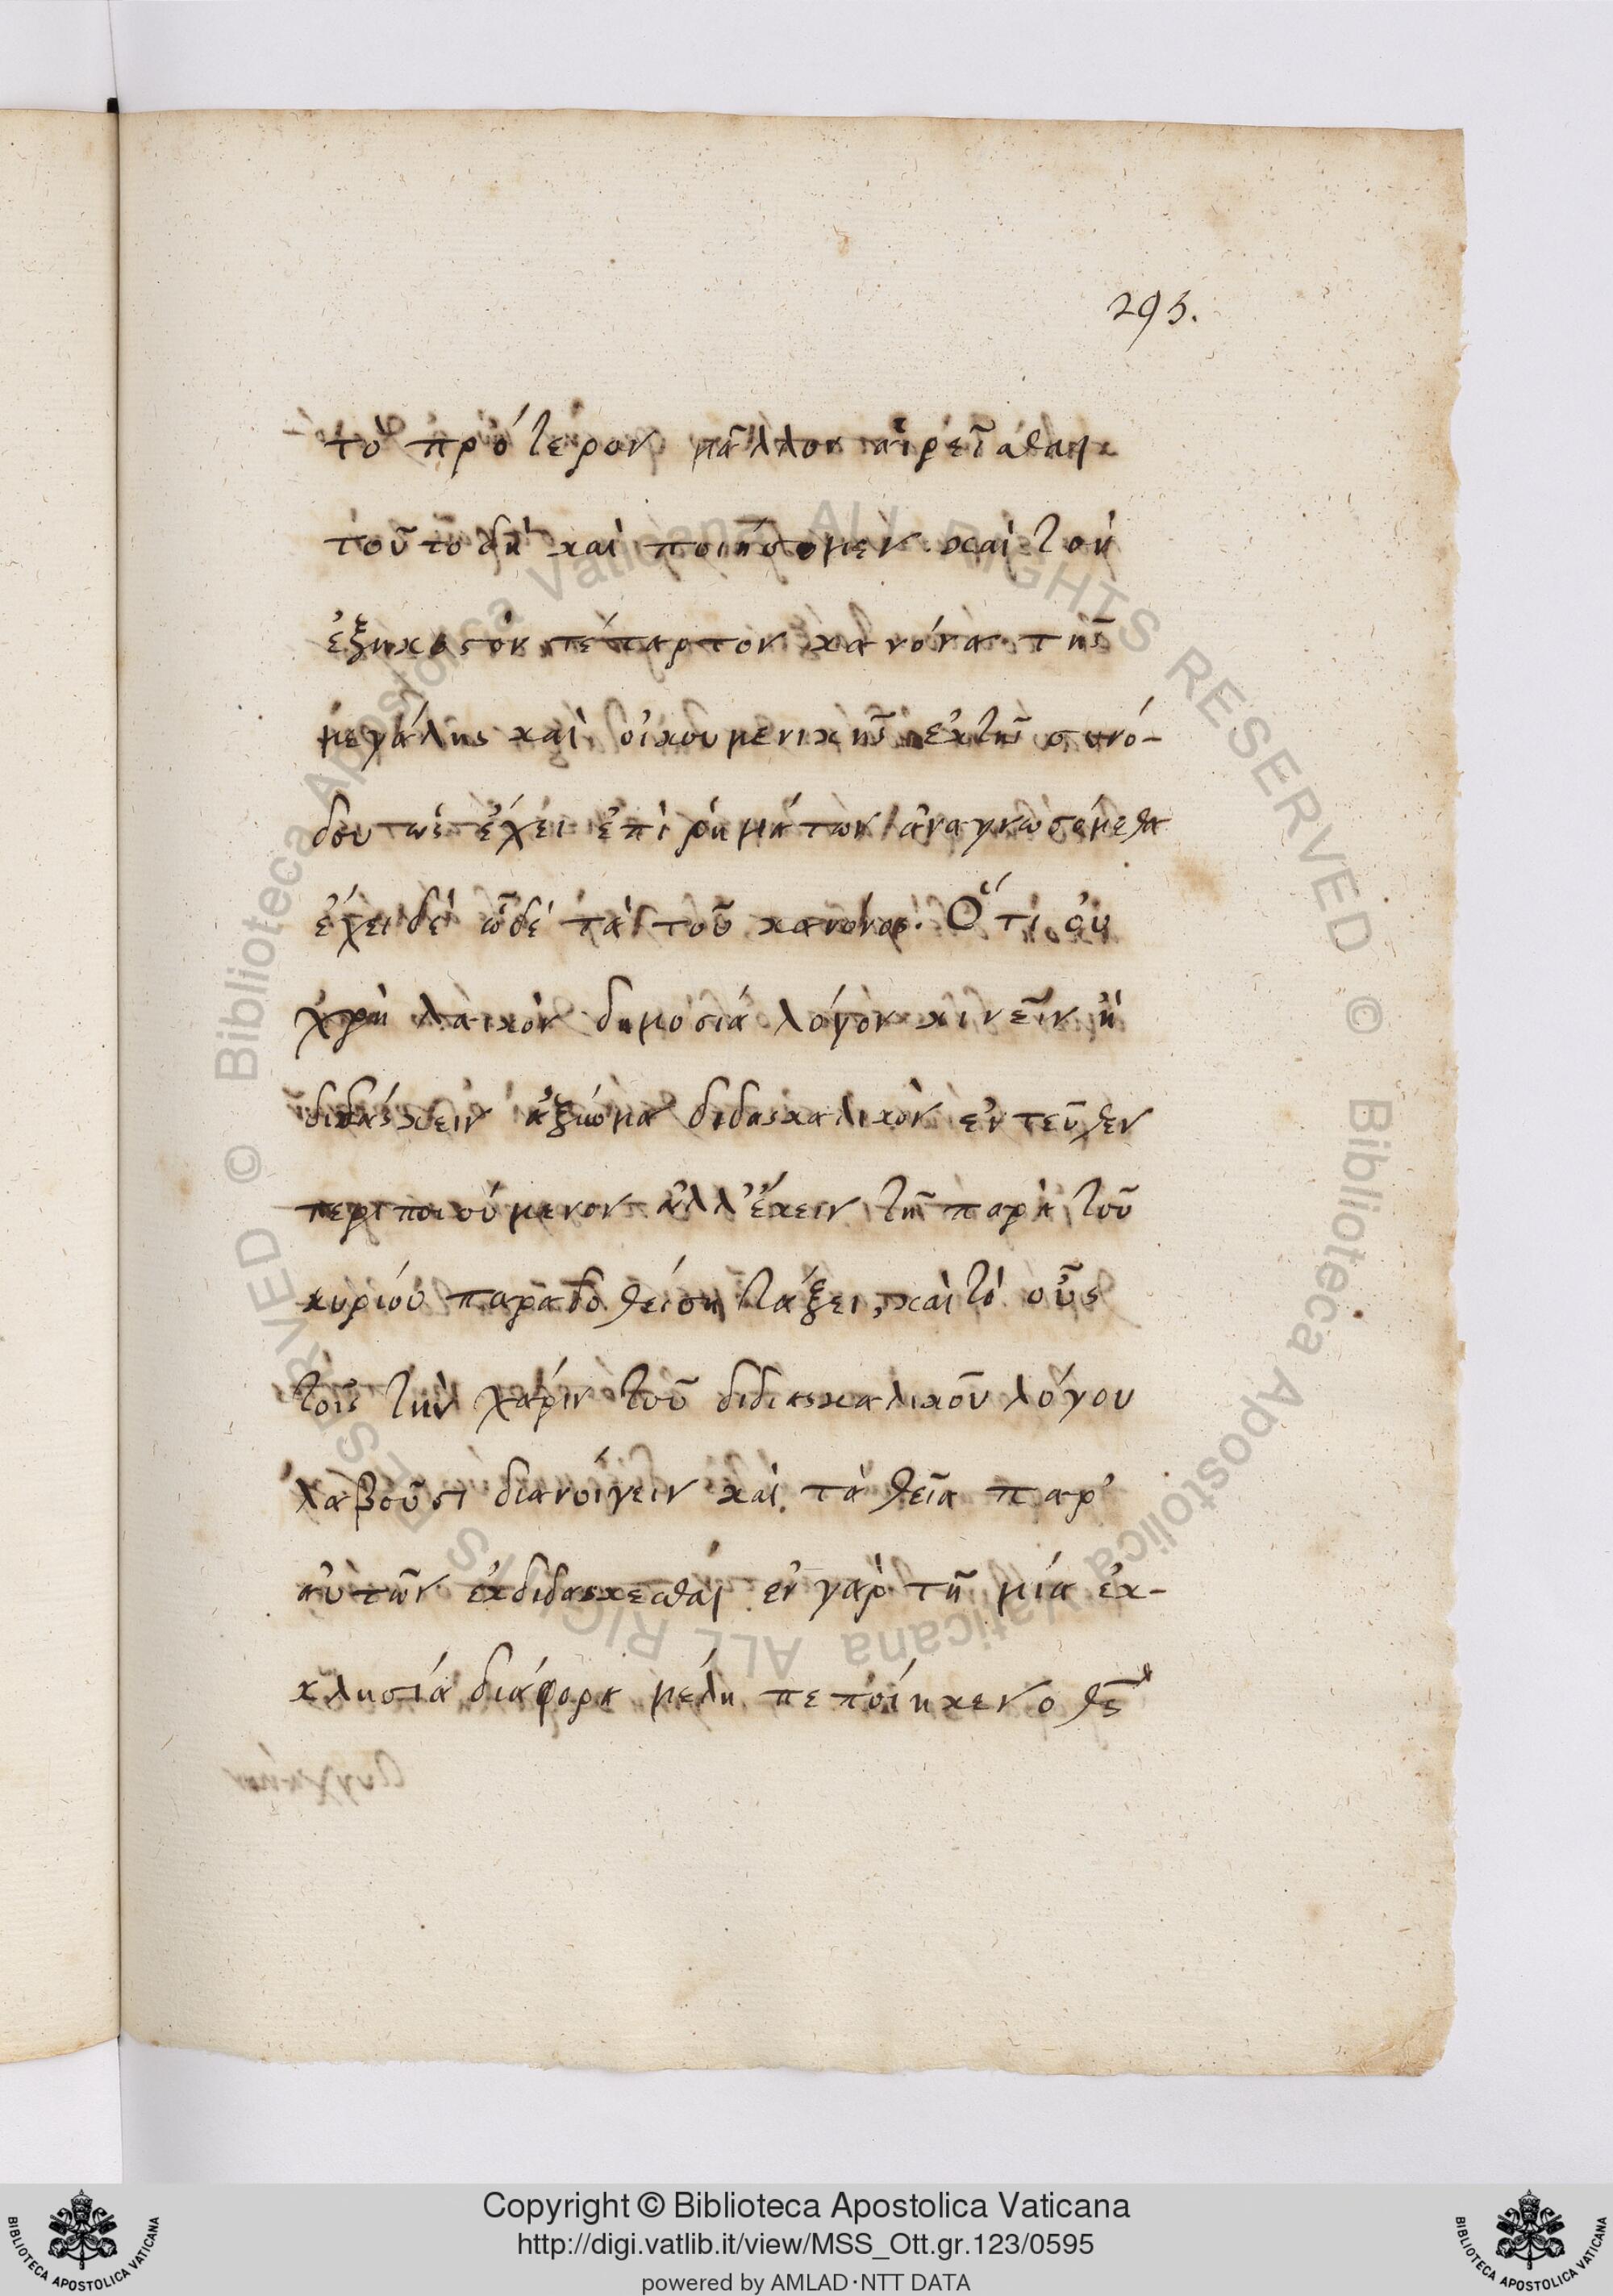 295.
τὸ πρότερον μᾶλλον αἱρεῖσθαι
τοῦτο δὴ καὶ ποιήσομεν. καὶ τὸν
ἑξηκοστὸν τέταρτον κανόνα τῆς
μεγάλης καὶ οἰκουμενικῆς ἕκτης συνό-
δου ὡς ἔχει ἐπὶ ῥημάτων ἀναγνωσόμεθα
ἔχει δὲ ὧδέ τὰ τοῦ κανόνος. Ὅτι οὐ
χρὴ λαικὸν δημοσίᾳ λόγον κινεῖν ἢ
διδάσκειν ἀξίωμα διδασκαλικὸν ἐντεῦθεν
περιποιούμενον ἀλλ' ἔχειν τῇ παρὰ τοῦ
κυρίου παραδοθείσῃ τάξει, καὶ τὸ οὖς
τοῖς τὴν χάριν τοῦ διδασκαλικοῦ λόγου
λαβοῦσι διανοίγειν καὶ τὰ θεῖα παρ'
αὐτῶν ἐκδιδασκεσθαι ἐν γὰρ τῇ μιᾷ ἐκ-
κλησίᾳ διάφορα μέλη πεποίηκεν ο θς
Copyright © Biblioteca Apostolica Vaticana
http://digi.vatlib.it/view/MSS_Ott.gr.123/0595
powered by AMLAD·NTT DATA
BIBLIOTECA APOSTOLICA VATICANA
BIBLIOTECA APOSTOLICA VATICANA
© Biblioteca Apostolica Vaticana ALL RIGHTS RESERVED © Biblioteca Apostolica Vaticana ALL RIGHTS RESERVED